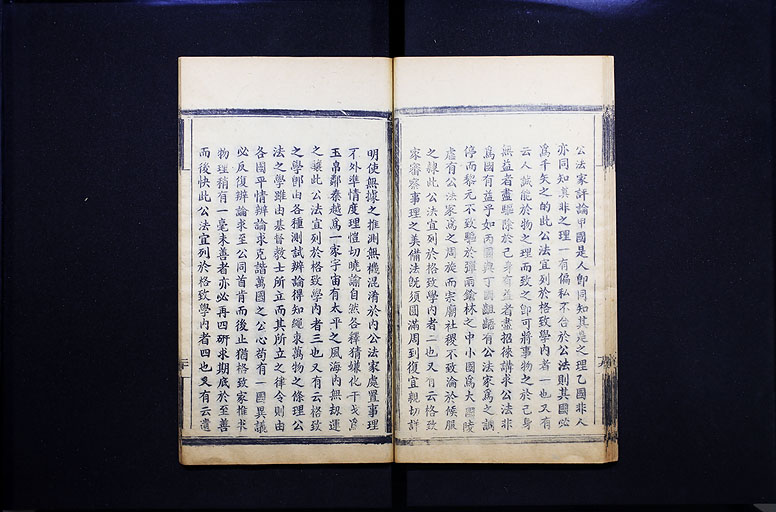 公法家評論甲國是人卽同知其是之理乙國非人
亦同知其非之理一有偏私不合於公法則其國必
爲千矢之的此公法宜列於格致學內者一也又有
云人誠能於物之理而致之卽可將事物之於己身
無益者盡驅除於己身有益者盡招徠講求公法非
爲國有益乎如丙國與丁國齟齬有公法家爲之調
停而黎元不致驅於彈雨鎗林之中小國爲大國陵
虐有公法家爲之周旋而宗廟社稷不致淪於候服
之隸此公法宜列於格致學內者二也又有云格致
家審察事理之美備法旣須圓滿周到復宜親切詳
明使無據之推測無機混淆於內公法家處置事理
不外準情度理愷切曉諭自然各釋猜嫌化干戈爲
玉帛鄰秦越爲一家宇宙有太平之風海內無刼運
之釀此公法宜列於格致學內者三也又有云格致
之學卽由各種測試辦論得知繩束萬物之條理公
法之學雖由基督敎士所立而其所立之律令則由
各國平情辦論求克諧萬國之公心苟有一國異議
必反復辦論求至公同首肯而後止猶格致家推求
物理稍有一毫未善者亦必再四硏求期底於至善
而後快此公法宜列於格致學內者四也又有云遺